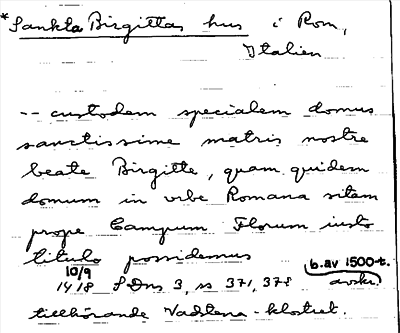 *Sankta Birgittas hus i Rom,
Italien
-- custodem specialem domus
sanctissime matris nostre
beate Birgitte, quam quidem
domum in vrbe Romana sitam
prope Campum Florum iusto
titulo possidemus
10/9 (b. av 1500-t.
1418 SDns 3, ss 371, 378 avskr.)
tillhörande Vadstena-klostret.